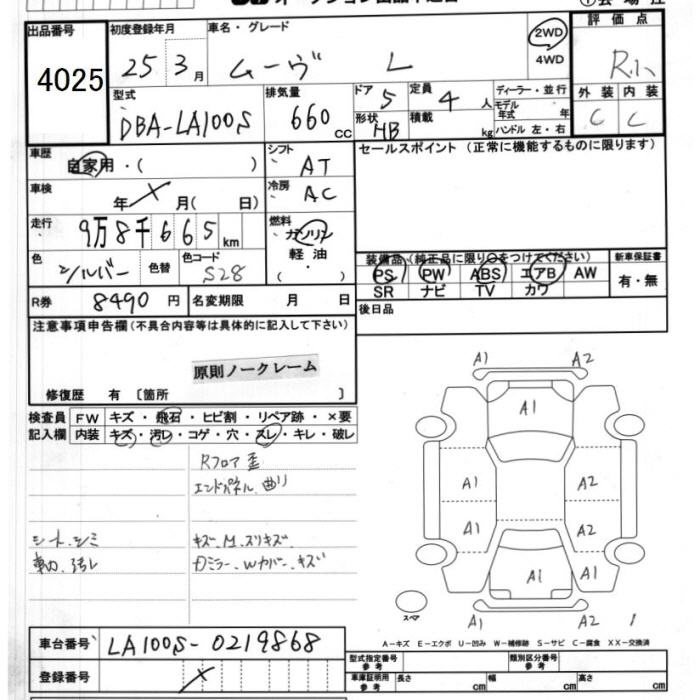 出品番号 初度登録年月 車名・グレード 2WD 4WD 評価点
4025 25 3月 ムーヴ L R小
型式 排気量 ドア 定員 ディーラー・並行 外装 内装
DBA-LA100S 660 cc 5 4人 モデル年式 年 C C
形状 HB 積載 kg ハンドル 左・右
車歴 自家用・( ) シフト AT セールスポイント (正常に機能するものに限ります)
車検 年 月( 日) 冷房 AC
走行 9万8千665km 燃料 ガソリン 軽油 ( ・ )
色 シルバー 色替 色コード S28
装備品(純正品に限り○をつけてください) 新車保証書
PS PW ABS エアB AW 有・無
SR ナビ TV カワ
R券 8490円 名変期限 月 日 後日品
注意事項申告欄(不具合内容等は具体的に記入して下さい)
原則ノークレーム
修復歴 有 〔箇所 〕
検査員記入欄 FW キズ・飛石・ヒビ割・リペア跡・×要
内装 キズ・汚レ・コゲ・穴・スレ・キレ・破レ
Rフロア 歪
エンドパネル、曲リ
シート、シミ キズ、M、スリキズ
車内、汚レ カミラー、Wカバー、キズ
A1 A2
A1
A1 A2
A1 A2
A1 A1
A1 A2
スペア
A－キズ E－エクボ U－凹み W－補修跡 S－サビ C－腐食 XX－交換済
車台番号 LA100S-0219868
型式指定番号 参考 類別区分番号 参考
登録番号
車庫証明用 参考 長さ cm 幅 cm 高さ cm